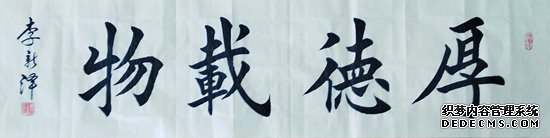 厚德載物
李新泽
织梦内容管理系统
DEDECMS.COM